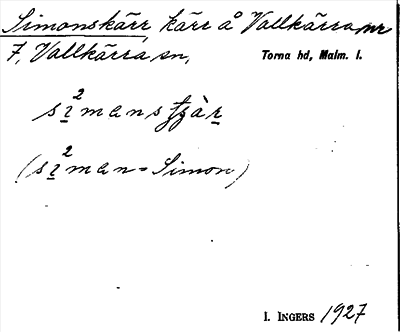 Simonskärr, kärr å Vallkärra nr
7, Vallkärra sn, Torna hd, Malm. l.
sı̲²mans
(sı̲²man = Simon)
I. INGERS 1927